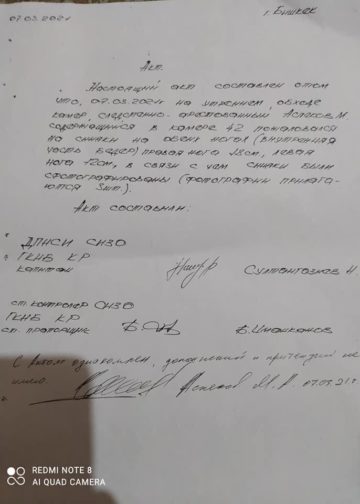 07.03.2021
г. Бишкек
Акт.
Настоящий акт составлен о том
что, 07.03.2021г на утреннем, обходе
камер, следственно-арестованный Аспеков М.
содержащийся в камере 42 пожаловался
на синяки на обеих ногах (внутренняя
часть бедер) правая нога 13см, левая
нога 12см, в связи с чем синяки были
сфотографированы (фотографии прилага-
ются 3шт.).
Акт составлен:
ДПНСИ СИЗО
ГКНБ КР
капитан Султонгазиев Н
ст. контролер СИЗО
ГКНБ КР
ст. прапорщик
С актом ознакомлен, дополнений и претензий не
имею. М. А. 07.03.21г
REDMI NOTE 8
AI QUAD CAMERA